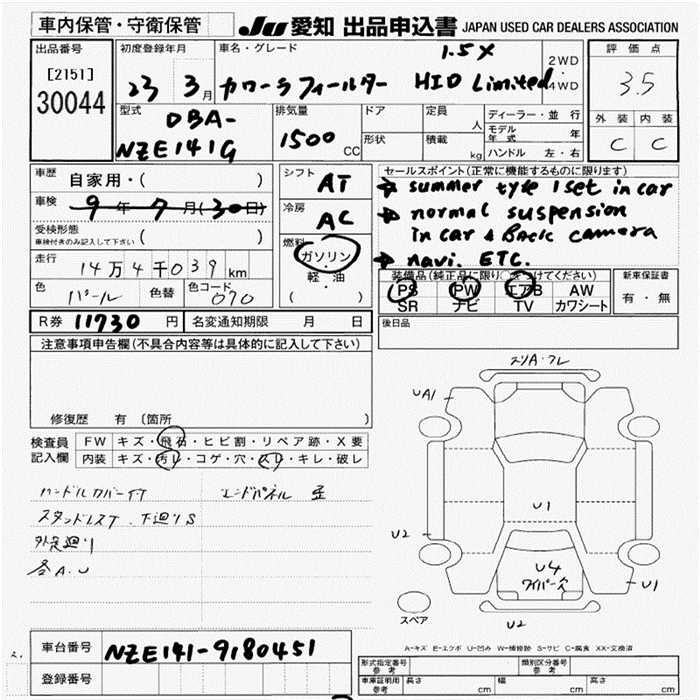 車内保管・守衛保管
JU 愛知 出品申込書 JAPAN USED CAR DEALERS ASSOCIATION
出品番号
[2151]
30044
初度登録年月
23 3月
車名・グレード
1.5X
カローラフィールダー HID Limited
2WD
・
4WD
評価点
3.5
外装 内装
C C
型式
DBA-
NZE141G
排気量
1500 CC
ドア
形状
定員 人
積載 kg
ディーラー・並行
モデル年式 年
ハンドル 左・右
車歴 自家用・( )
車検 9年7月(30日)
受検形態
車検付きのみ記入して下さい ( )
走行 14万4千039km
色 パール 色替 色コード 070
シフト AT
冷房 AC
燃料
ガソリン
・
軽・油
( )
セールスポイント(正常に機能するものに限ります)
→ summer tyte 1set in car
→ normal suspension
in car & Back camera
→ navi. ETC.
装備品(純正品に限り○をつけてください)
PS PW エアB AW
SR ナビ TV カワシート
新車保証書
有・無
R券 11730円 名変通知期限 月 日
後日品
注意事項申告欄(不具合内容等は具体的に記入して下さい)
修復歴 有 〔箇所 〕
検査員
記入欄
FW キズ・飛石・ヒビ割・リペア跡・X要
内装 キズ・汚レ・コゲ・穴・スレ・キレ・破レ
ハンドルカバー付 エンドパネル 歪
下廻りS
外 廻り
各A.U
スリA・フレ
UA1
U2
U1
U4
ワイパー穴
U1
U2
スペア
A-キズ E-エクボ U-凹み W-補修跡 S-サビ C-腐食 XX-交換済
車台番号 NZE141-9180451
登録番号
形式指定番号
参考
類別区分番号
参考
車庫証明用
参考
長さ cm 幅 cm 高さ cm